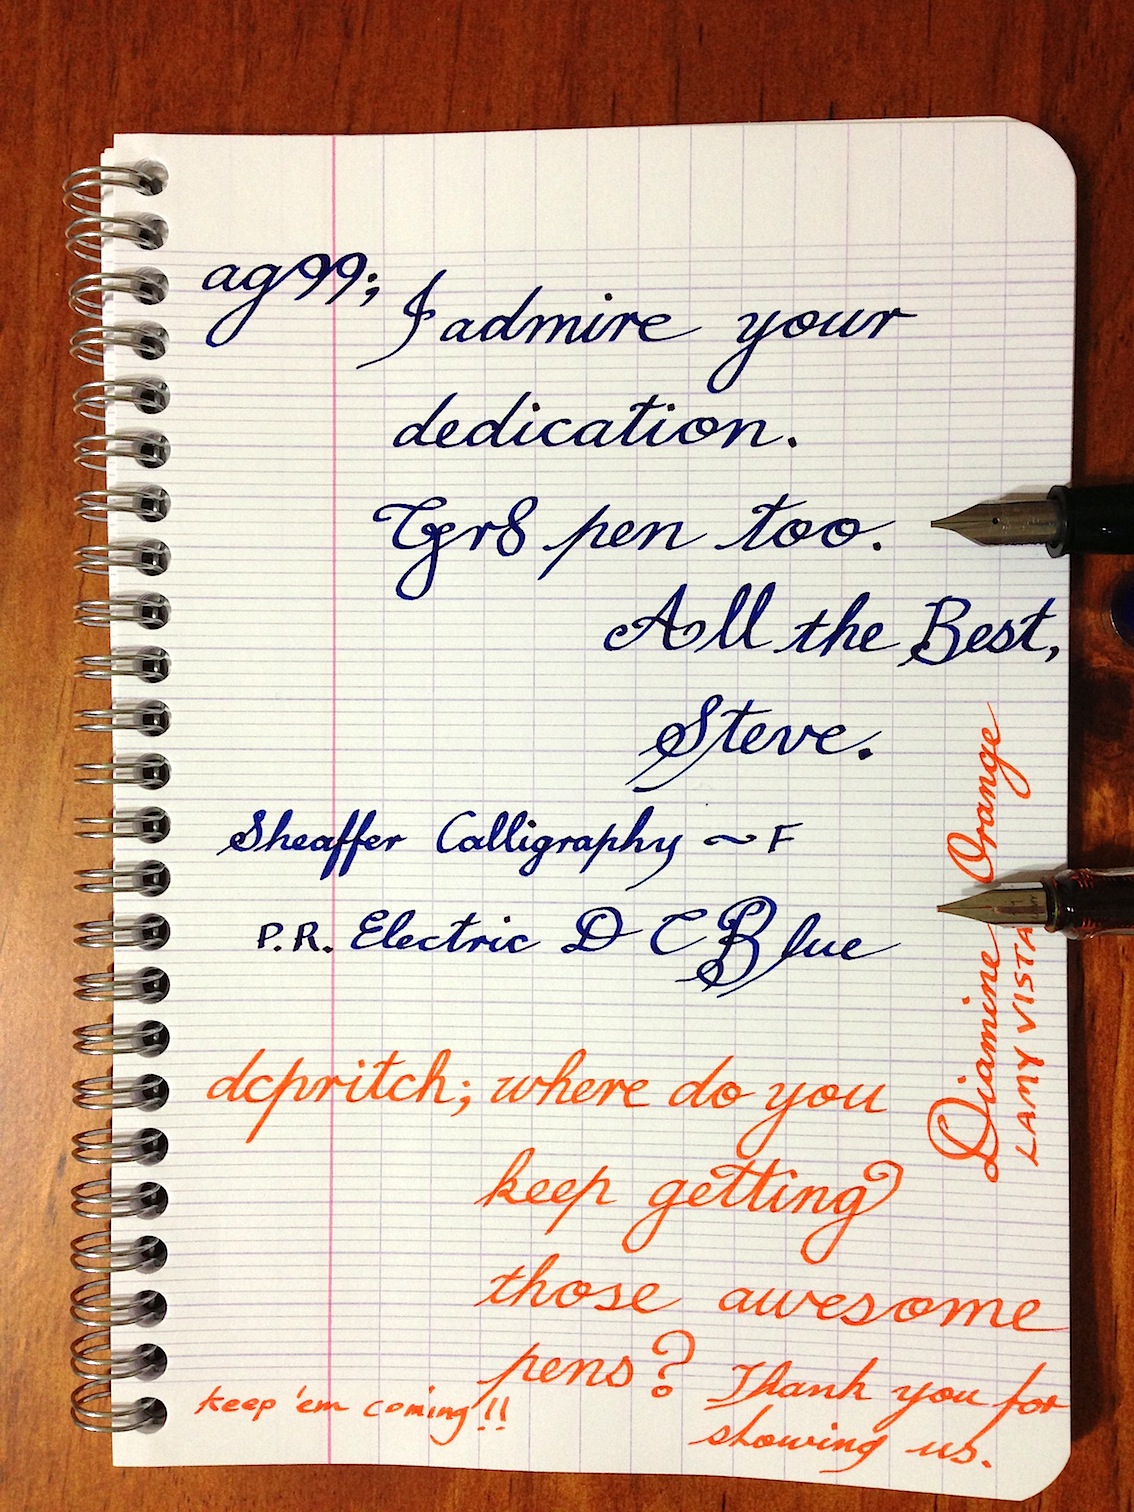 ag99;
I admire your
dedication.
Gr8 pen too.
All the Best,
Steve.
Sheaffer Calligraphy ~ F
P.R. Electric D C Blue
Diamine Orange
LAMY VISTA
dcpritch; where do you
keep getting
those awesome
pens?
Thank you for
showing us.
keep 'em coming!!